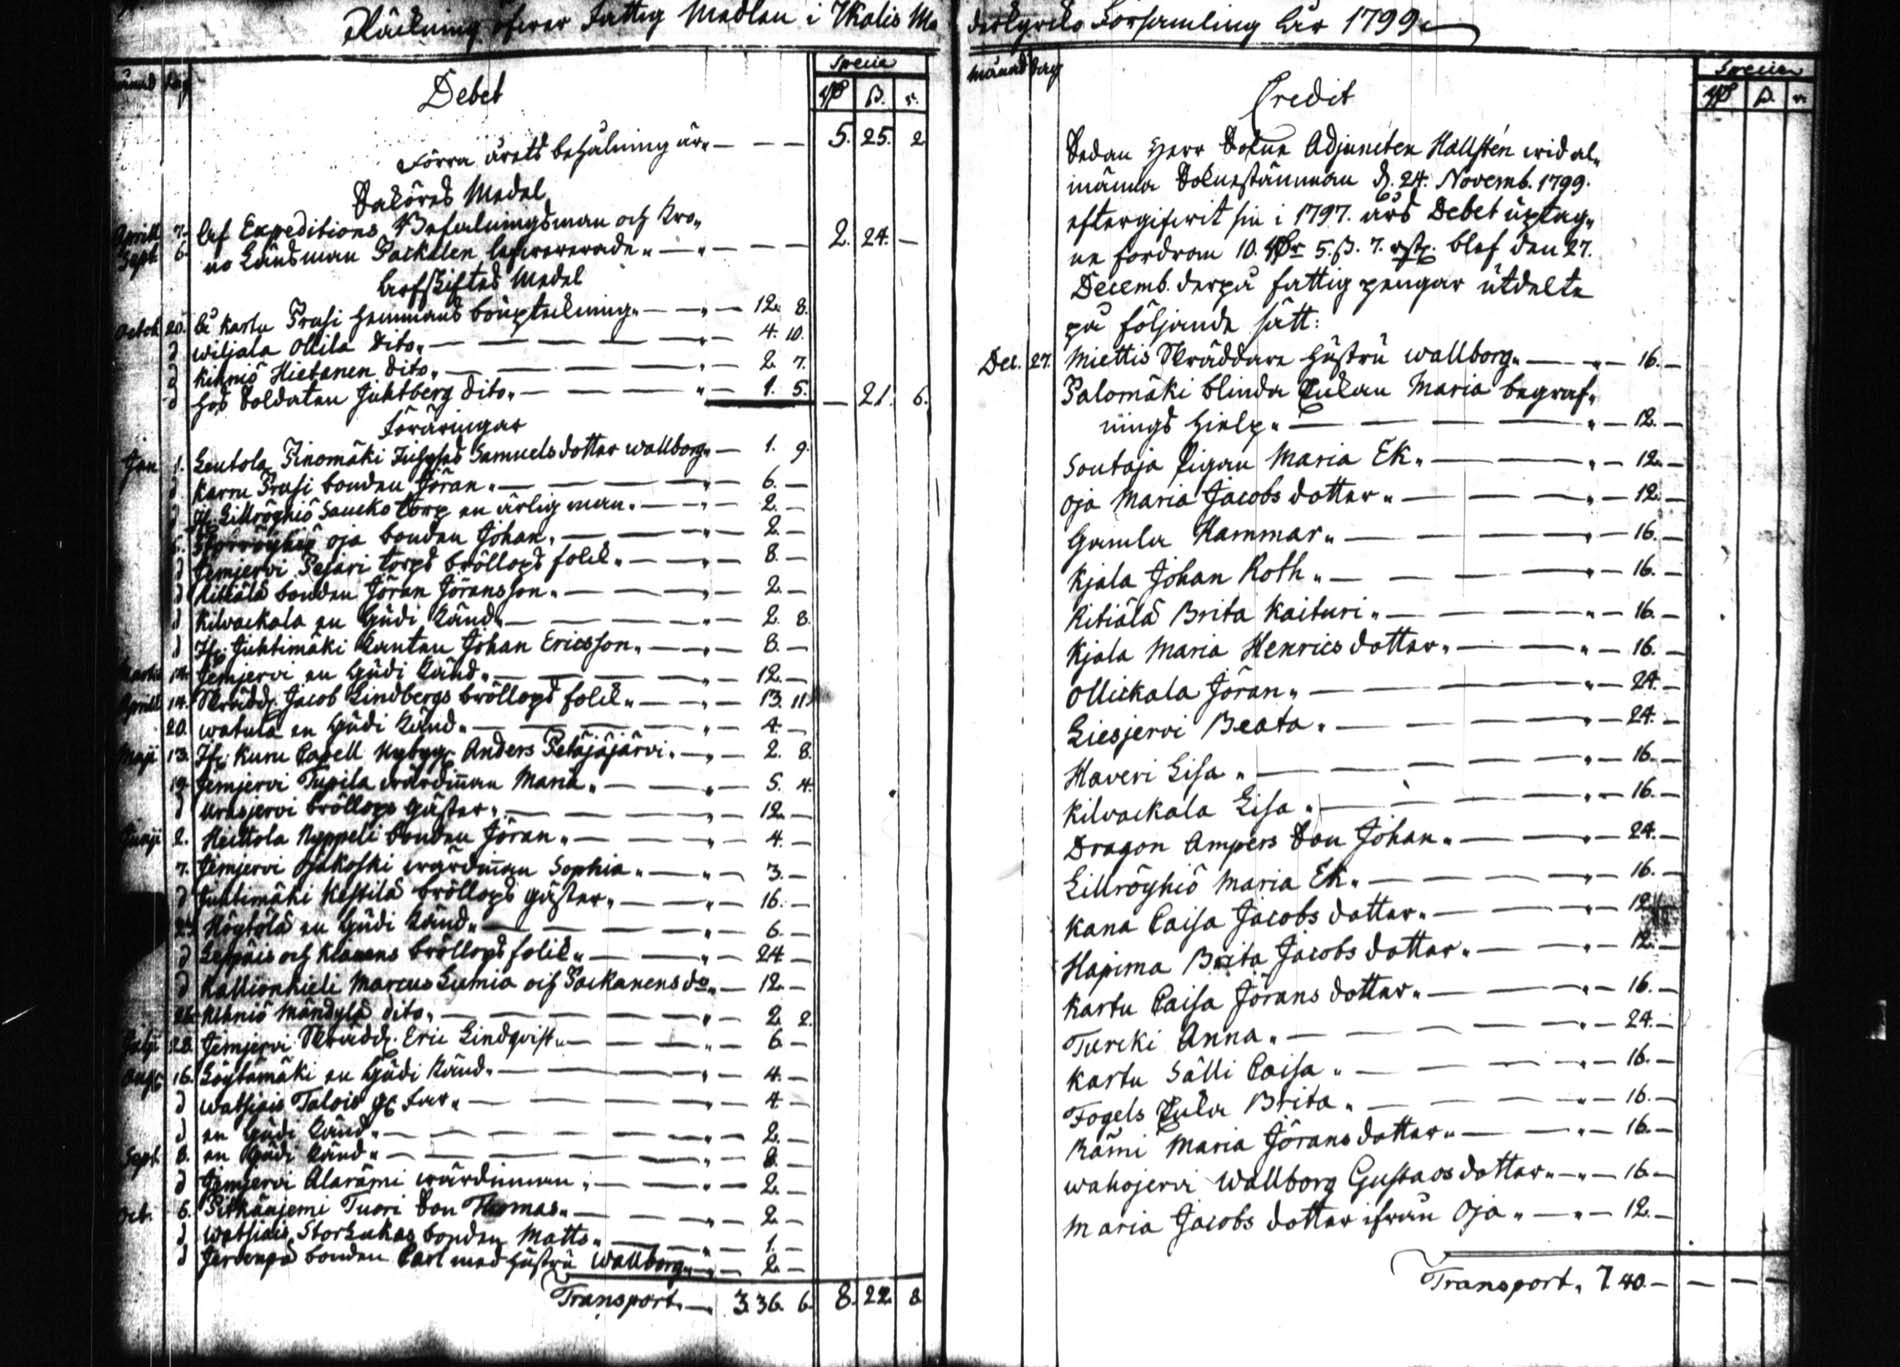 Räkning öfwer Fattig Medlen i Ikalis Mo
derkyrko Församling år 1799
Månad Dag
Debet
Specie
Rd ß. r.
Förra årets behålning är 5. 25. 2
Saköres Medel
Aprill 7. Af Expeditions Befalningsman och Kro
Sept 6. no Länsman Packalen lefwererade 2. 24. —
Arfskiftes Medel
Octob 20. Å Kartu Prusi hemmans bouptekning 12. 8.
d wiljala Ollila dito 4. 10.
d Kihniö Hietanen dito 2. 7.
d hos Soldaten Juhtberg dito 1. 5. — 21. 6.
Föräringar
Jan 1. Leutola Pinomäki Samuelsdotter wallborg 1. 9.
d Karru Prusi bonden Jöran 6. —
d Lillröyhiö Saucko torp en ärlig man 2. —
oja bonden Johan 2. —
d Jemjervi Pejari torps bröllops folck 8. —
d Ritiälä bonden Jöran Jöransson 2. —
d Kilvackala en Gudi känd 2. 8.
d Juhtimäki Lanten Johan Ericsson 8. —
14. Jemjervi en Gudi känd 12. —
Aprill 14. Skrädd. Jacob Lindbergs bröllops folck 13. 11
20. watula en Gudi känd 4. —
Maji 13. If. Kuru Capell Nybygg. Anders Petäjäjärvi 2. 8.
19. Jemjervi Tupila wärdinnan Maria 5. 4.
d Urasjervi bröllops gäster 12. —
Junji 2. Heittola Nyppeli bonden Jöran 4. —
7. Jemjervi Ojakoski wärdinnan Sophia 3. —
d Juhtimäki Kessilä bröllops gäster 16. —
Höytölä en Gudi känd 6. —
d Leppäis och Klaunens bröllops folck 24 —
d Kallionkieli Marcus Lumia och Packanens do 12. —
Kihniö Mändylä dito 2. 2.
Julji 28. Jemjervi Skrädd. Eric Lindqvist 6 —
Aug 16. Löytämäki en Gudi känd 4. —
d watsiais Talois 4 —
d en Gudi känd 2. —
Sept. 8. en Gudi känd 8. —
d Jemjervi Alarämi wärdinnan 2. —
Oct. 6. Pitkänjemi Tuori Son Thomas 2. —
d watsiais Storlukas bonden Matts 1. —
d Jervenpä bonden Carl med hustru Wallborg 2 —
Transport 3. 36. 6. 8. 22. 8
Månad Dag
Credit
Specie
Rd ß. r.
Sedan Herr Sokne Adjuncten Hallstén wid al
männa Soknestämman d. 24. Novemb. 1799.
eftergifwit sin i 1797. års Debet uptag
ne fordran 10. Rdr 5. ß. 7. rst. blef den 27.
Decemb. derpå fattig pengar utdelte
på följande sätt:
Dec. 27. Miettis Skräddare hustru wallborg 16. —
Palomäki blinda Enkan Maria begraf
nings hielp 12. —
Soutaja Pigan Maria Ek 12. —
Oja Maria Jacobs dotter 12. —
Gamla Hammar 16. —
Kjala Johan Roth 16. —
Ritiälä Brita Kaituri 16. —
Kjala Maria Henrics dotter 16. —
Ollickala Jöran 24. —
Liesjervi Beata 24. —
Haveri Lisa 16. —
Kilvackala Lisa 16. —
Dragon Ampers Son Johan 24. —
Lillröyhiö Maria Ek 16. —
Kana Caisa Jacobs dotter 12
Hapima Brita Jacobs dotter 12. —
Kartu Caisa Jörans dotter 16. —
Turcki Anna 24. —
Kartu Sälli Caisa 16. —
Fogels Enka Brita 16. —
Rämi Maria Jörans dotter 16. —
wahojervi wallborg Gustavs dotter 16 —
Maria Jacobs dotter ifrån Oja 12. —
Transport 7. 40. — — — —